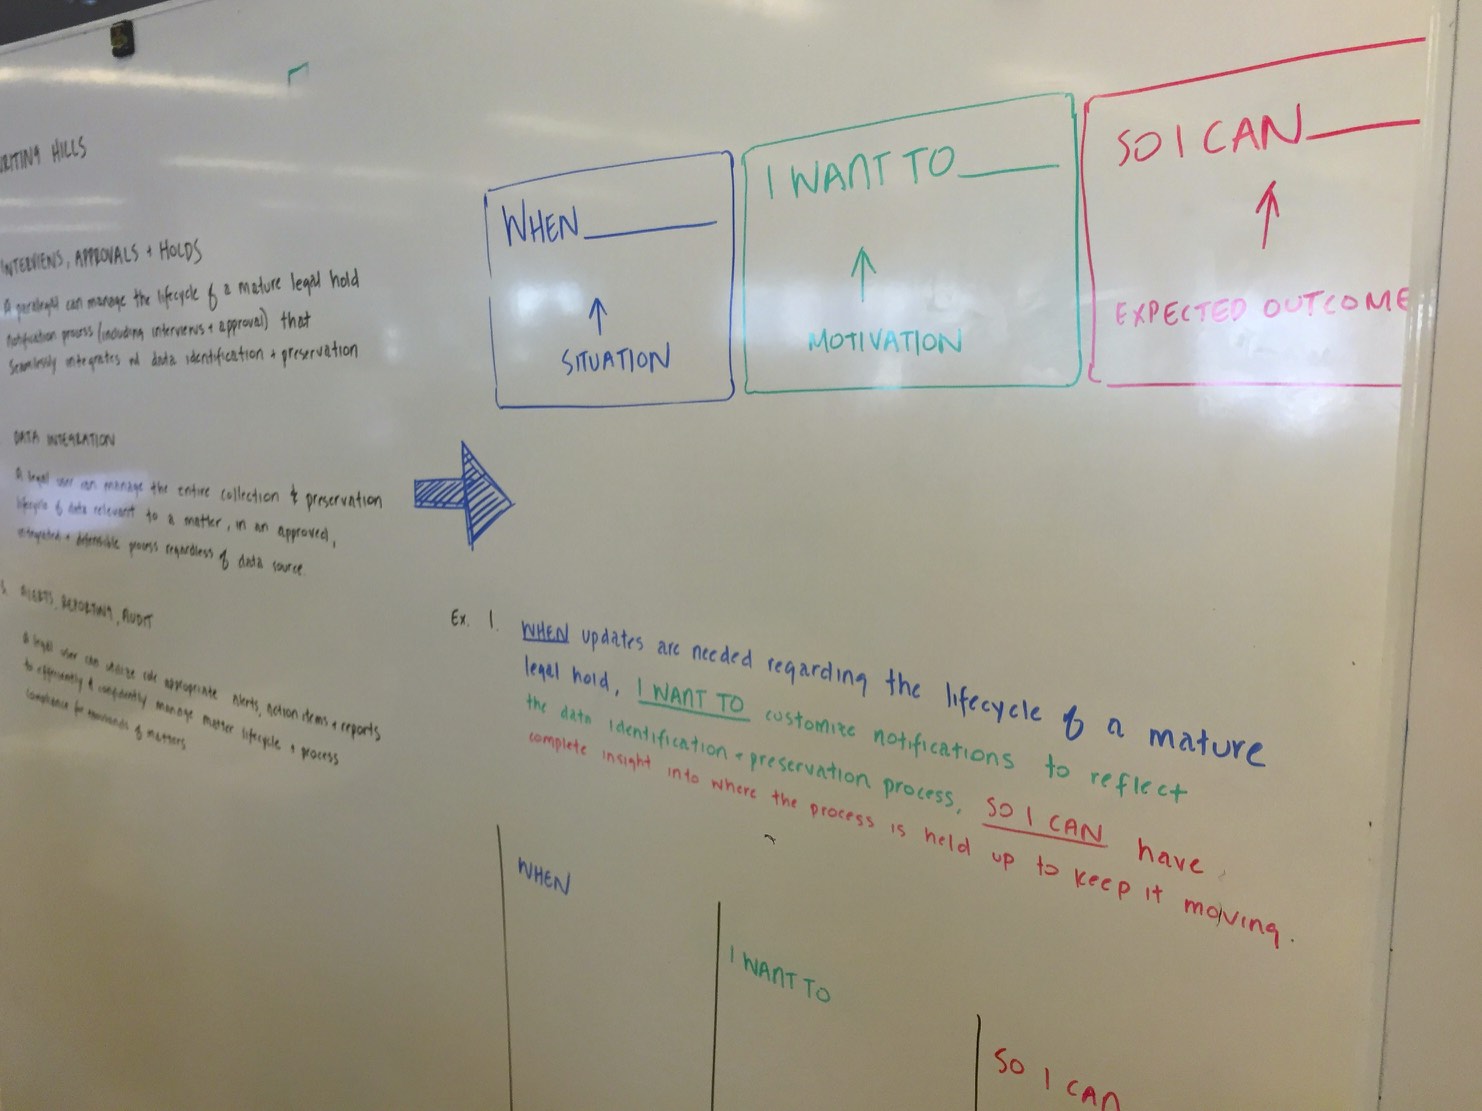 WRITING HILLS
INTERVIEWS, APPROVALS + HOLDS
A paralegal can manage the lifecycle of a mature legal hold
notification process (including interviews + approval) that
Seamlessly integrates w/ data identification + preservation
DATA INTEGRATION
A legal user can manage the entire collection & preservation
lifecycle of data relevant to a matter, in an approved,
integrated + defensible process regardless of data source.
3. ALERTS, REPORTING, AUDIT
A legal user can utilize role appropriate alerts, action items + reports
to efficiently & confidently manage matter lifecycle + process
compliance for thousands of matters
WHEN
SITUATION
I WANT TO
MOTIVATION
SO I CAN
EXPECTED OUTCOME
Ex. 1. WHEN updates are needed regarding the lifecycle of a mature
legal hold, I WANT TO customize notifications to reflect
the data identification + preservation process, SO I CAN have
complete insight into where the process is held up to keep it moving.
WHEN
I WANT TO
SO I CAN